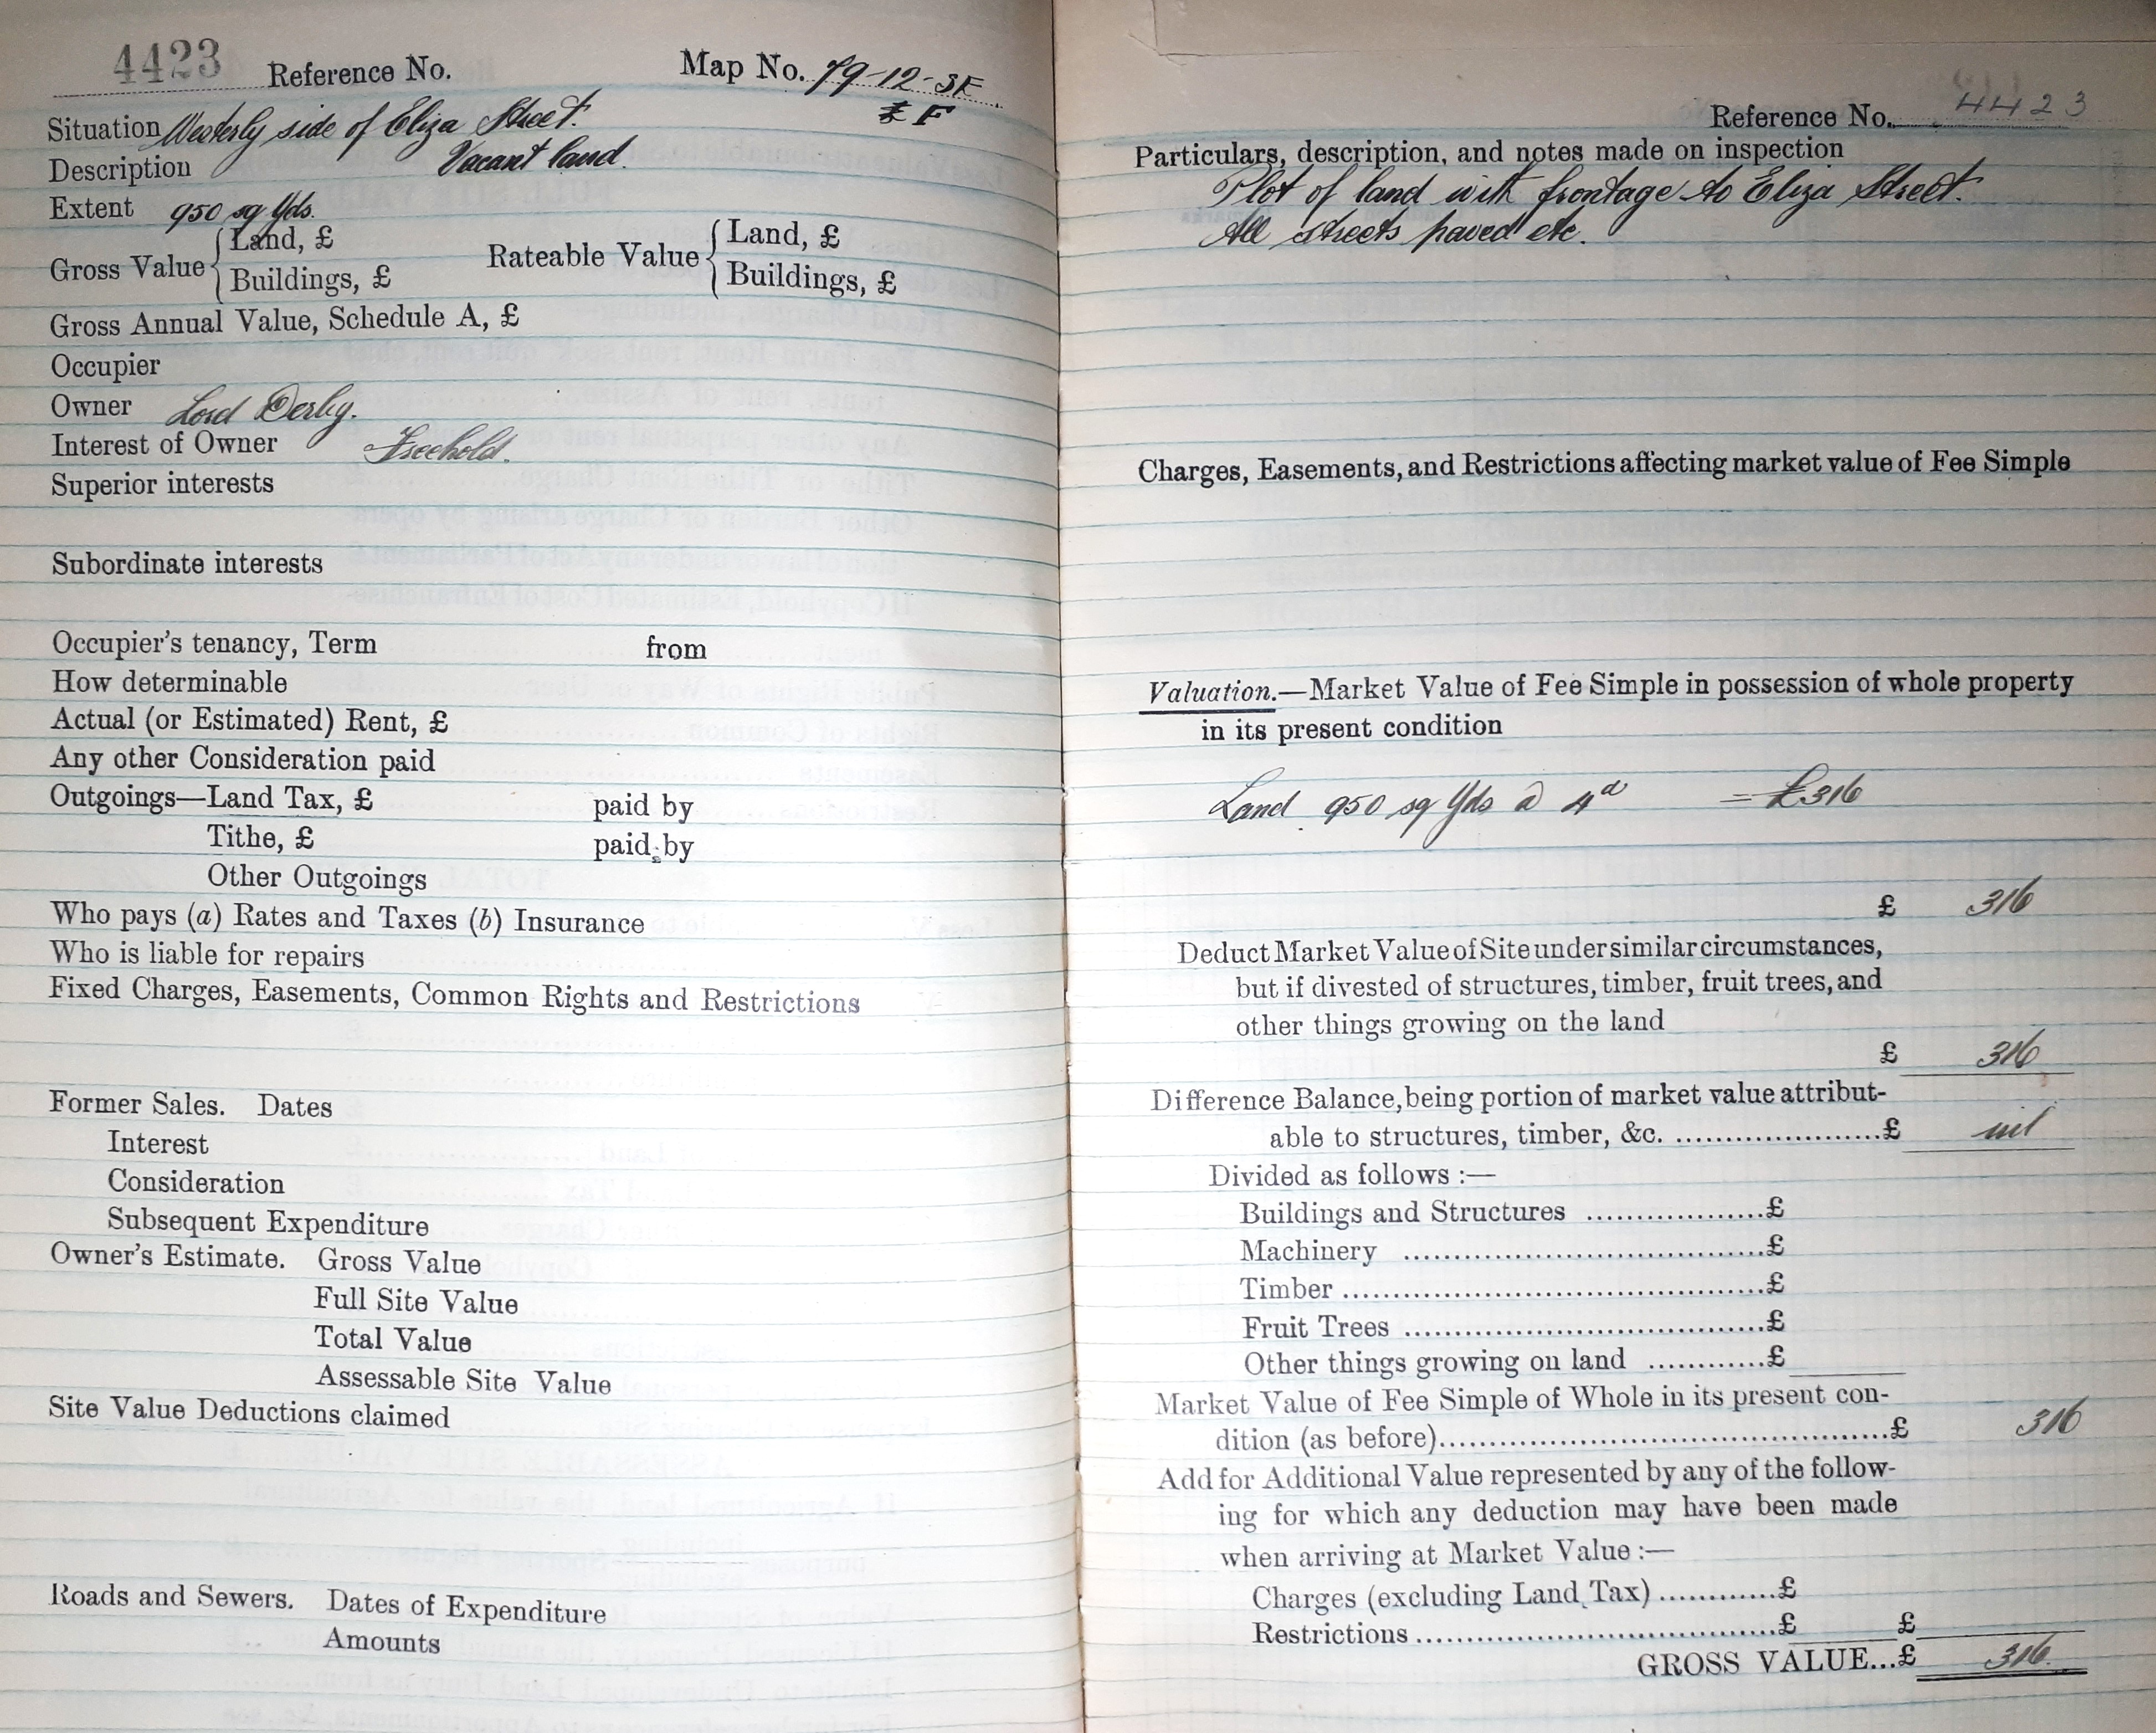 4423 Reference No. Map No. 79-12-3E
& F
Situation Westerly side of Eliza Street.
Description Vacant land.
Extent 950 sq Yds.
Gross Value { Land, £ Rateable Value { Land, £
Buildings, £ Buildings, £
Gross Annual Value, Schedule A, £
Occupier
Owner Lord Derby.
Interest of Owner Freehold.
Superior interests
Subordinate interests
Occupier's tenancy, Term from
How determinable
Actual (or Estimated) Rent, £
Any other Consideration paid
Outgoings—Land Tax, £ paid by
Tithe, £ paid by
Other Outgoings
Who pays (a) Rates and Taxes (b) Insurance
Who is liable for repairs
Fixed Charges, Easements, Common Rights and Restrictions
Former Sales. Dates
Interest
Consideration
Subsequent Expenditure
Owner's Estimate. Gross Value
Full Site Value
Total Value
Assessable Site Value
Site Value Deductions claimed
Roads and Sewers. Dates of Expenditure
Amounts
Reference No. 4423
Particulars, description, and notes made on inspection
Plot of land with frontage to Eliza Street.
All streets paved etc.
Charges, Easements, and Restrictions affecting market value of Fee Simple
Valuation.—Market Value of Fee Simple in possession of whole property
in its present condition
Land 950 sq Yds @ 4d = £316
£ 316
Deduct Market Value of Site under similar circumstances,
but if divested of structures, timber, fruit trees, and
other things growing on the land
£ 316
Difference Balance, being portion of market value attribut-
able to structures, timber, &c. ......................£ nil
Divided as follows :—
Buildings and Structures ...................£
Machinery .......................................£
Timber .............................................£
Fruit Trees .......................................£
Other things growing on land ............£
Market Value of Fee Simple of Whole in its present con-
dition (as before)................................................£ 316
Add for Additional Value represented by any of the follow-
ing for which any deduction may have been made
when arriving at Market Value :—
Charges (excluding Land Tax) ............£
Restrictions ......................................£ £
GROSS VALUE...£ 316